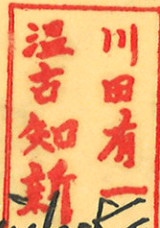 川田有一
温古知新